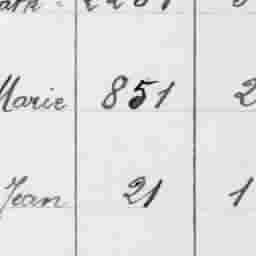 Marie 851 2
Jean 21 1